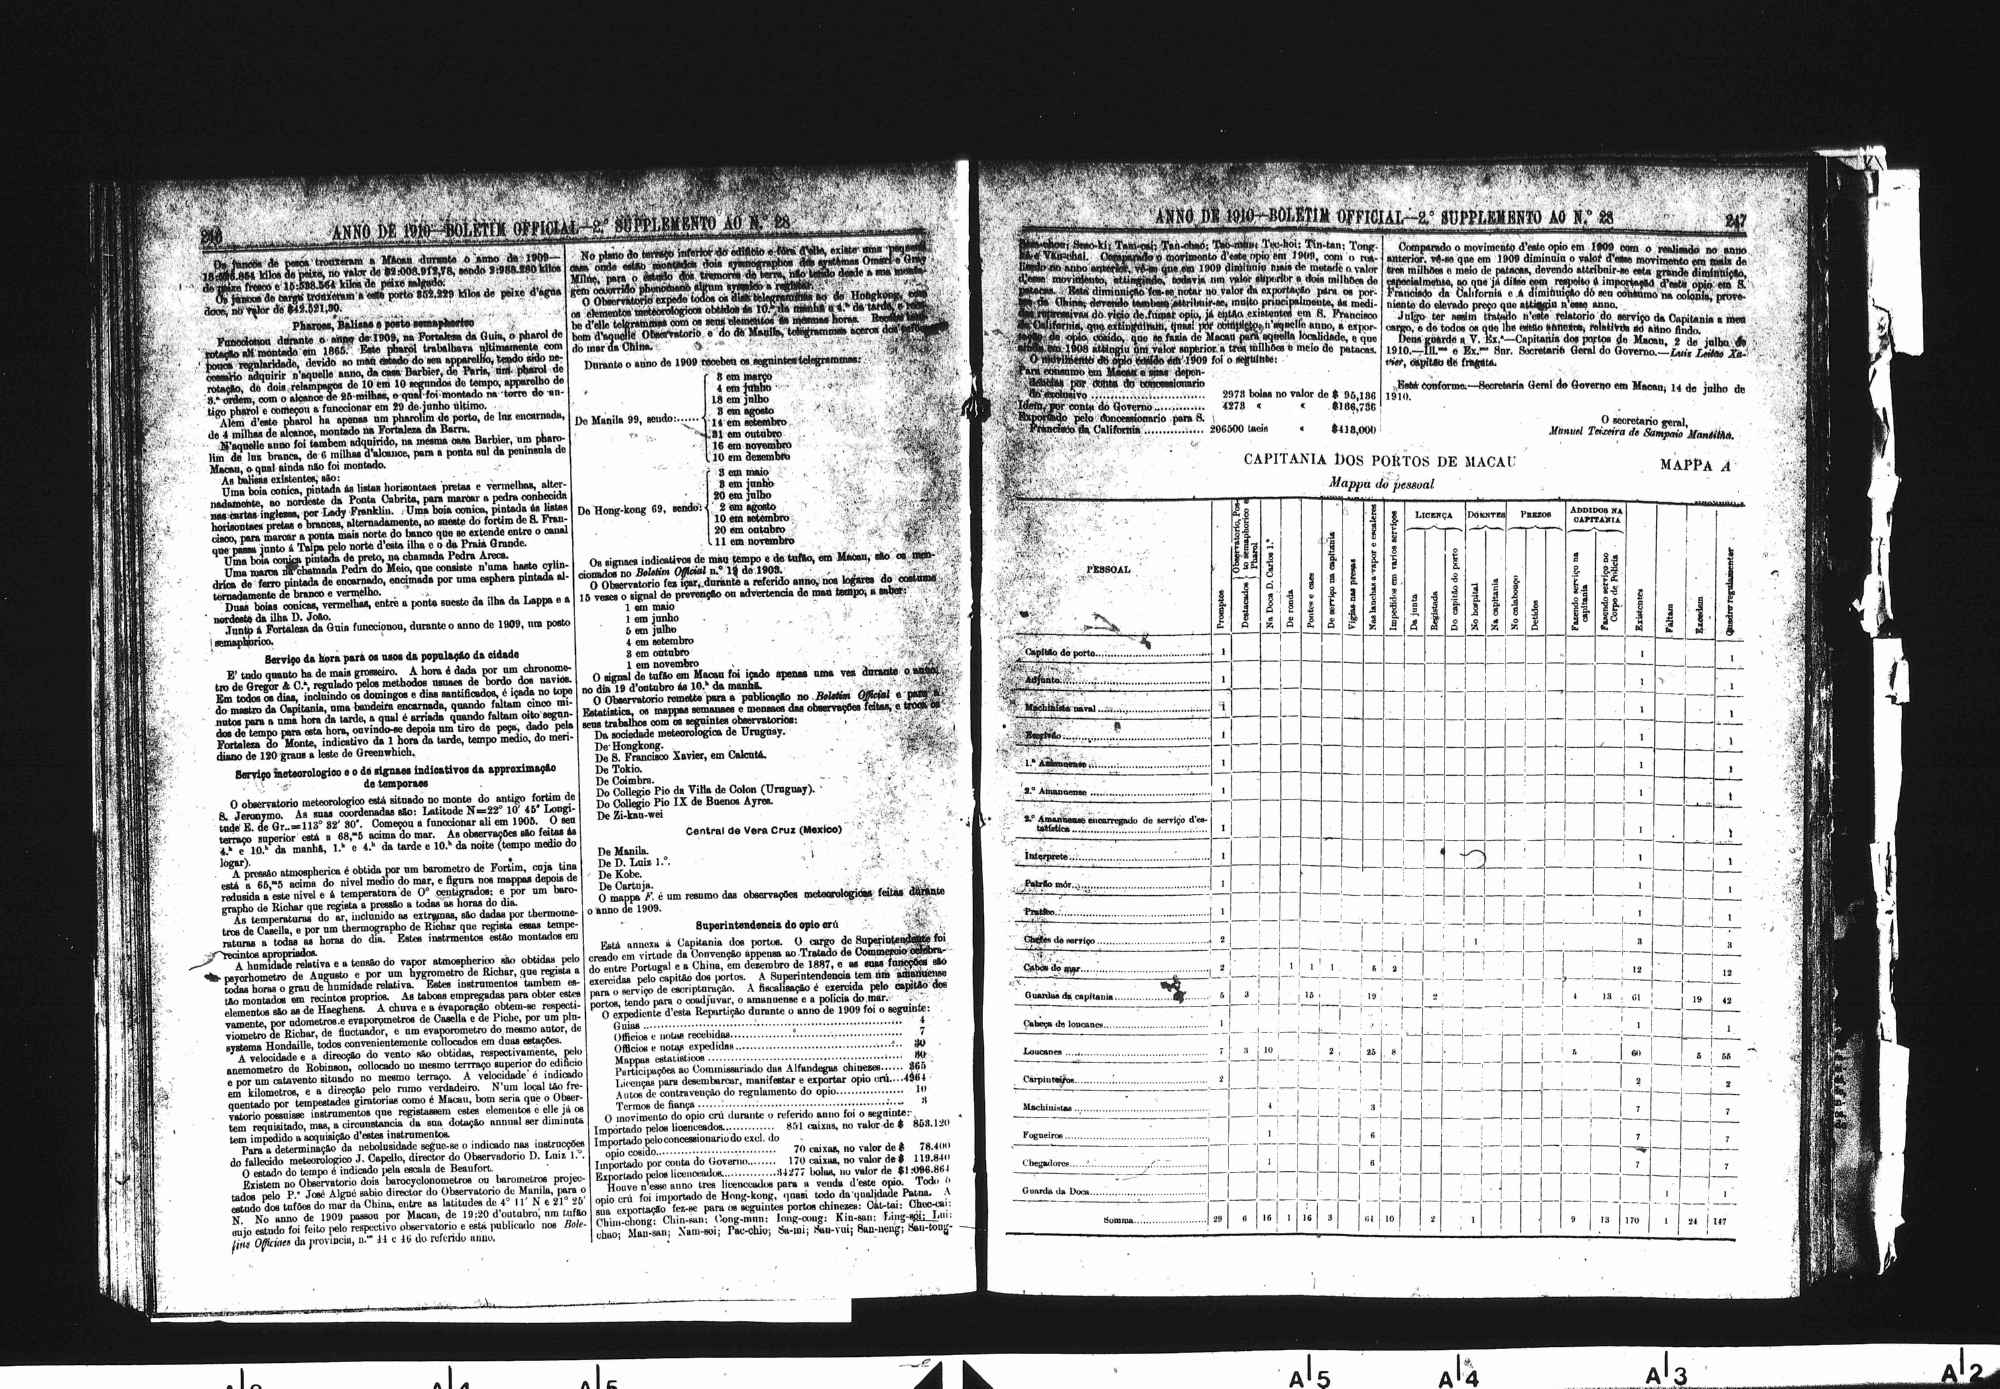 246
ANNO DE 1910—BOLETIM OFFICIAL—2.º SUPPLEMENTO AO N.º 28
Os juncos de pesca trouxeram a Macau durante o anno de 1909—
kilos de peixe, no valor de $2:008.912,78, sendo kilos
de peixe fresco e 15:538.564 kilos de peixe salgado.
Os juncos de carga trouxeram a este porto 352,229 kilos de peixe d'agua
doce, no valor de $42.521,30.
Pharoes, Balisas e posto semaphorico
Funccionou durante o anno de 1909, na Fortaleza da Guia, o pharol de
rotação alí montado em 1865. Este pharol trabalhava ultimamente com
pouca regularidade, devido ao mau estado do seu apparelho, tendo sido ne-
cessario adquirir n'aquelle anno, da casa Barbier, de Paris, um pharol de
rotação, de dois relampagos de 10 em 10 segundos de tempo, apparelho de
3.ª ordem, com o alcance de 25 milhas, o qual foi montado na torre do an-
tigo pharol e começou a funccionar em 29 de junho último.
Além d'este pharol ha apenas um pharolim de porto, de luz encarnada,
de 4 milhas de alcance, montado na Fortaleza da Barra.
N'aquelle anno foi tambem adquirido, na mesma casa Barbier, um pharo-
lim de luz branca, de 6 milhas d'alcance, para a ponta sul da peninsula de
Macau, o qual ainda não foi montado.
As balisas existentes, são:
Uma boia conica, pintada ás listas horisontaes pretas e vermelhas, alter-
nadamente, ao nordeste da Ponta Cabrita, para marcar a pedra conhecida
nas cartas inglezas, por Lady Franklin. Uma boia conica, pintada ás listas
horisontaes pretas e brancas, alternadamente, ao sueste do fortim de S. Fran-
cisco, para marcar a ponta mais norte do banco que se extende entre o canal
que passa junto á Taipa pelo norte d'esta ilha e o da Praia Grande.
Uma boia conica pintada de preto, na chamada Pedra Areca.
Uma marca na chamada Pedra do Meio, que consiste n'uma haste cylin-
drica de ferro pintada de encarnado, encimada por uma esphera pintada al-
ternadamente de branco e vermelho.
Duas boias conicas, vermelhas, entre a ponta sueste da ilha da Lappa e a
nordeste da ilha D. João.
Junto á Fortaleza da Guia funccionou, durante o anno de 1909, um posto
semaphorico.
Serviço da hora para os usos da população da cidade
E' tudo quanto ha de mais grosseiro. A hora é dada por um chronome-
tro de Gregor & C.ª, regulado pelos methodos usuaes de bordo dos navios.
Em todos os dias, incluindo os domingos e dias santificados, é içada no tope
do mastro da Capitania, uma bandeira encarnada, quando faltam cinco mi-
nutos para a uma hora da tarde, a qual é arriada quando faltam oito segun-
dos de tempo para esta hora, ouvindo-se depois um tiro de peça, dado pela
Fortaleza do Monte, indicativo da 1 hora da tarde, tempo medio, do meri-
diano de 120 graus a leste de Greenwhich.
Serviço meteorologico e o de signaes indicativos da approximação
de temporaes
O observatorio meteorologico está situado no monte do antigo fortim de
S. Jeronymo. As suas coordenadas são: Latitude N=22° 10' 45" Longi-
tude E. de Gr..=113° 32' 30". Começou a funccionar ali em 1905. O seu
terraço superior está a 68,ᵐ5 acima do mar. As observações são feitas ás
4.ʰ e 10.ʰ da manhã, 1.ʰ e 4.ʰ da tarde e 10.ʰ da noite (tempo medio do
logar).
A pressão atmospherica é obtida por um barometro de Fortim, cuja tina
está a 65,ᵐ5 acima do nivel medio do mar, e figura nos mappas depois de
redusida a este nivel e á temperatura de 0° centigrados; e por um baro-
grapho de Richar que regista a pressão a todas as horas do dia.
As temperaturas do ar, incluindo as extremas, são dadas por thermome-
tros de Casella, e por um thermographo de Richar que regista essas tempe-
raturas a todas as horas do dia. Estes instrmentos estão montados em
recintos apropriados.
A humidade relativa e a tensão do vapor atmospherico são obtidas pelo
psyorhometro de Augusto e por um hygrometro de Richar, que regista a
todas horas o grau de humidade relativa. Estes instrumentos tambem es-
tão montados em recintos proprios. As taboas empregadas para obter estes
elementos são as de Haeghens. A chuva e a évaporação obtem-se respecti-
vamente, por udometros e evaporometros de Casella e de Piche, por um plu-
viometro de Richar, de fluctuador, e um evaporometro do mesmo autor, de
systema Hondaille, todos convenientemente collocados em duas estações.
A velocidade e a direcção do vento são obtidas, respectivamente, pelo
anemometro de Robinson, collocado no mesmo terrraço superior do edificio
e por um catavento situado no mesmo terraço. A velocidade é indicado
em kilometros, e a direcção pelo rumo verdadeiro. N'um local tão fre-
quentado por tempestades giratorias como é Macau, bom seria que o Obser-
vatorio possuisse instrumentos que registassem estes elementos e elle já os
tem requisitado, mas, a circunstancia da sua dotação annual ser diminuta
tem impedido a acquisição d'estes instrumentos.
Para a determinação da nebolusidade segue-se o indicado nas instrucções
do fallecido meteorologico J. Capello, director do Observadorio D. Luiz 1.º.
O estado do tempo é indicado pela escala de Beaufort.
Existem no Observatorio dois barocyclonometros ou barometros projec-
tados pelo P.ᵉ José Algué sabio director do Observatorio de Manila, para o
estudo dos tufões do mar da China, entre as latitudes de 4° 11' N e 21° 25'
N. No anno de 1909 passou por Macau, de 19:20 d'outubro, um tufão
cujo estudo foi feito pelo respectivo observatorio e está publicado nos Bole-
tins Officiaes da provincia, n.ᵒˢ 44 e 46 do referido anno.
No plano do terraço inferior do edificio e fóra d'elle, existe uma pequena
casa onde estão montados dois symographos dos systemas Omori e Gray
Milne, para o estudo dos tremores de terra, não tendo desde a sua monta-
gem ocorrido phenomeno algum a registar.
O Observatorio expede todos os dias telegrammas ao de Hongkong, com
os elementos meteorologicos obtidos ás 10.ʰ da manhã e 4.ʰ da tarde, e rece-
be d'elle telgrammas com os seus elementos ás mesmas horas. Recebe tam-
bem d'aquelle Observatorio e do de Manila, telegrammas acerca dos tufões
do mar da China.
Durante o anno de 1909 recebeu os seguintes telegrammas:
De Manila 99, sendo:
8 em março
4 em junho
18 em julho
3 em agosto
14 em setembro
31 em outubro
16 em novembro
10 em dezembro
De Hong-kong 69, sendo:
3 em maio
3 em junho
20 em julho
2 em agosto
10 em setembro
20 em outubro
11 em novembro
Os signaes indicativos de mau tempo e de tufão, em Macau, são os men-
cionados no Boletim Official n.º 19 de 1903.
O Observatorio fez içar, durante a referido anno, nos logares do costume
15 vezes o signal de prevenção ou advertencia de mau tempo, a saber:
1 em maio
1 em junho
5 em julho
4 em setembro
3 em outubro
1 em novembro
O signal de tufão em Macau foi içado apenas uma ves durante o anno,
no dia 19 d'outubro ás 10.ʰ da manhã.
O Observatorio remette para a publicação no Boletim Official e para a
Estatistica, os mappas semanaes e mensaes das observações feitas, e troca os
seus trabalhos com os seguintes observatorios:
Da sociedade meteorologica de Uruguay.
De Hongkong.
De S. Francisco Xavier, em Calcutá.
De Tokio.
De Coimbra.
Do Collegio Pio da Villa de Colon (Uruguay).
Do Collegio Pio IX de Buenos Ayres.
De Zi-kau-wei
Central de Vera Cruz (Mexico)
De Manila.
De D. Luiz 1.º.
De Kobe.
De Cartuja.
O mappa F. é um resumo das observações meteorologicas feitas durante
o anno de 1909.
Superintendencia do opio crú
Está annexa á Capitania dos portos. O cargo de Superintendente foi
creado em virtude da Convenção appensa ao Tratado de Commercio celebra-
do entre Portugal e a China, em dezembro de 1887, e as suas funcções são
exercidas pelo capitão dos portos. A Superintendencia tem um amanuense
para o serviço de escripturação. A fiscalisação é exercida pelo capitão dos
portos, tendo para o coadjuvar, o amanuense e a policia do mar.
O expediente d'esta Repartição durante o anno de 1909 foi o seguinte:
Guias 4
Officios e notas recebidas 7
Officios e notas expedidas 30
Mappas estatisticos 80
Participações ao Commissariado das Alfandegas chinezes 365
Licenças para desembarcar, manifestar e exportar opio crú 4964
Autos de contravenção do regulamento do opio 10
Termos de fiança 3
O movimento do opio crú durante o referido anno foi o seguinte:
Importado pelos licenceados 851 caixas, no valor de $ 853.120
Importado pelo concessionario do excl. do
opio cosido 70 caixas, no valor de $ 78.400
Importado por conta do Governo 170 caixas, no valor de $ 119.840
Exportado pelos licenceados 34277 bolas, no valor de $1:096.864
Houve n'esse anno tres licenceados para a venda d'este opio. Todo o
opio crú foi importado de Hong-kong, quasi todo da qualidade Patna. A
sua exportação fez-se para os seguintes portos chinezes: Cát-tai; Chec-cai;
Chim-chong; Chin-san; Cong-mun; Iong-cong; Kin-san; Ling-soi; Lui;
chao; Man-san; Nam-soi; Pac-chio; Sa-mi; San-vui; San-neng; San-tong-
ANNO DE 1910—BOLETIM OFFICIAL—2.º SUPPLEMENTO AO N.º 28
247
Seac-ki; Tam-cai; Tan-chao; Tao-mun; Tec-hoi; Tin-tan; Tong-
e Van-chai. Comparado o movimento d'este opio em 1909, com o rea-
lisado no anno anterior, vê-se que em 1909 diminuiu mais de metade o valor
d'esse movimento, attingindo, todavia um valor superior a dois milhões de
patacas. Esta diminuição fez-se notar no valor da exportação para os por-
tos da China, devendo tambem attribuir-se, muito principalmente, ás medi-
das repressivas do vicio de fumar opio, já então existentes em S. Francisco
da California, que extinguiram, quasi por completo, n'aquelle anno, a expor-
tação de opio, cosido, que se fazia de Macau para aquella localidade, e que
ainda em 1908 attingiu um valor superior a tres milhões e meio de patacas.
O movimento do opio cosido em 1909 foi o seguinte:
Para consumo em Macau e suas depen-
dencias por conta do concessionario
do exclusivo 2973 bolas no valor de $ 95,136
Idem, por conta do Governo 4273 « « $136,736
Exportado pelo concessionario para S.
Francisco da California 206500 taeis « $413,000
Comparado o movimento d'este opio em 1909 com o realisado no anno
anterior, vê-se que em 1909 diminuiu o valor d'esse movimento em mais de
tres milhões e meio de patacas, devendo attribuir-se esta grande diminuição,
especialmente, ao que já disse com respeito á importação d'este opio em S.
Francisco da California e á diminuição do seu consumo na colonia, prove-
niente do elevado preço que attingiu n'esse anno.
Julgo ter assim tratado n'este relatorio do serviço da Capitania a meu
cargo, e de todos os que lhe estão annexos, relativos ao anno findo.
Deus guarde a V. Ex.ª—Capitania dos portos de Macau, 2 de julho de
1910.—Ill.ᵐᵒ e Ex.ᵐᵒ Snr. Secretario Geral do Governo.—Luiz Leitão Xa-
vier, capitão de fragata.
Está conforme.—Secretaria Geral do Governo em Macau, 14 de julho de
1910.
O secretario geral,
Manuel Teixeira de Sampaio Mansilha.
CAPITANIA DOS PORTOS DE MACAU
MAPPA A
Mappa do pessoal
PESSOAL
Promptos
Destacados
Observatorio, Pos-
to semaphorico e
Pharol
Na Doca D. Carlos 1.º
De ronda
Pontes e caes
De serviço na capitania
Vigias nas presas
Nas lanchas a vapor e escaleres
Impedidos em varios serviços
LICENÇA
Da junta
Registada
Do capitão do porto
DOENTES
No hospital
Na capitania
PREZOS
No calabouço
Detidos
ADDIDOS NA
CAPITANIA
Fazendo serviço na
capitania
Fazendo serviço no
Corpo de Policia
Existentes
Faltam
Excedem
Quadro regulamentar
Capitão do porto 1 1 1
Adjunto 1 1 1
Machinista naval 1 1 1
Escrivão 1 1 1
1.º Amanuense 1 1 1
2.º Amanuense 1 1 1
2.º Amanuense encarregado de serviço d'es-
tatistica 1 1 1
Interprete 1 1 1
Patrão mór 1 1 1
Pratico 1 1 1
Chefes de serviço 2 1 3 3
Cabos do mar 2 1 1 1 5 2 12 12
Guardas da capitania 5 3 15 19 2 4 13 61 19 42
Cabeça de loucanes 1 1 1
Loucanes 7 3 10 2 25 8 5 60 5 55
Carpinteiros 2 2 2
Machinistas 4 3 7 7
Fogueiros 1 6 7 7
Chegadores 1 6 7 7
Guarda da Doca 1 1
Somma 29 6 16 1 16 3 61 10 2 1 9 13 170 1 24 147
A|5
A|4
A|3
A|2